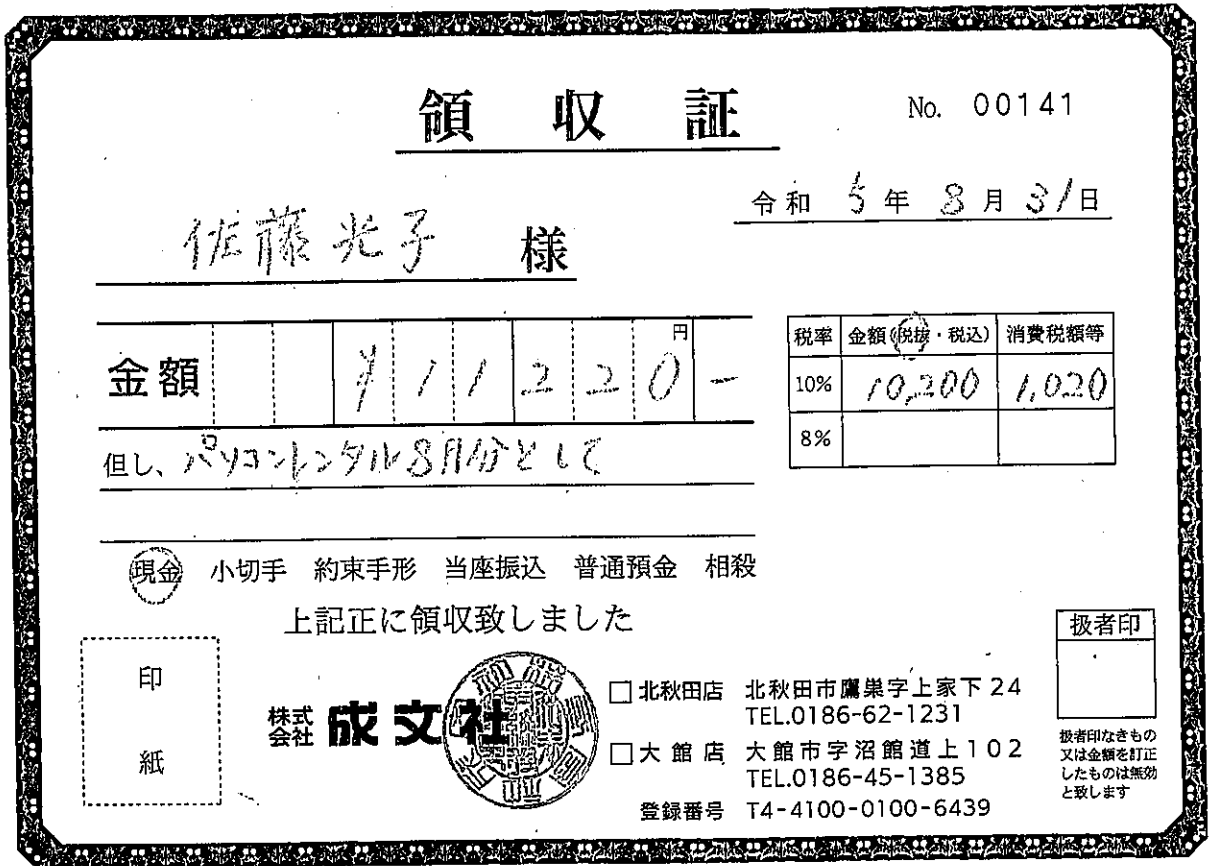 領収証
No. 00141
令和 5年 8月 31日
佐藤光子 様
金額 ¥11220円-
税率 金額(税抜・税込) 消費税額等
10% 10,200 1,020
8%
但し、パソコンレンタル8月分として
現金 小切手 約束手形 当座振込 普通預金 相殺
上記正に領収致しました
印紙
株式会社 成文社
□北秋田店 北秋田市鷹巣字上家下24
TEL.0186-62-1231
□大館店 大館市字沼館道上102
TEL.0186-45-1385
登録番号 T4-4100-0100-6439
扱者印
扱者印なきもの
又は金額を訂正
したものは無効
と致します